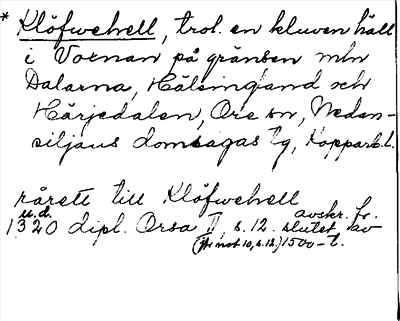 * Klöfwehell, trol. en kluven häll
i Voxnan på gränsen mln
Dalarna, Hälsingland och
Härjedalen, Ore sn, Nedan-
siljans domsagas tg, Kopparb. l.
rårett till Klöfwehell
u.d. avskr. fr.
1320 dipl. Orsa II, s. 12. slutet av
(jfr not 10, s. 12.) 1500-t.